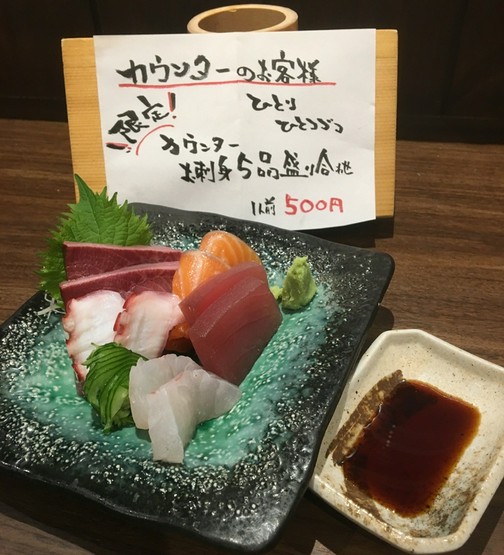 カウンターのお客様
限定!
ひとり
ひとつづつ
カウンター
お刺身5品盛り合せ
1人前 500円